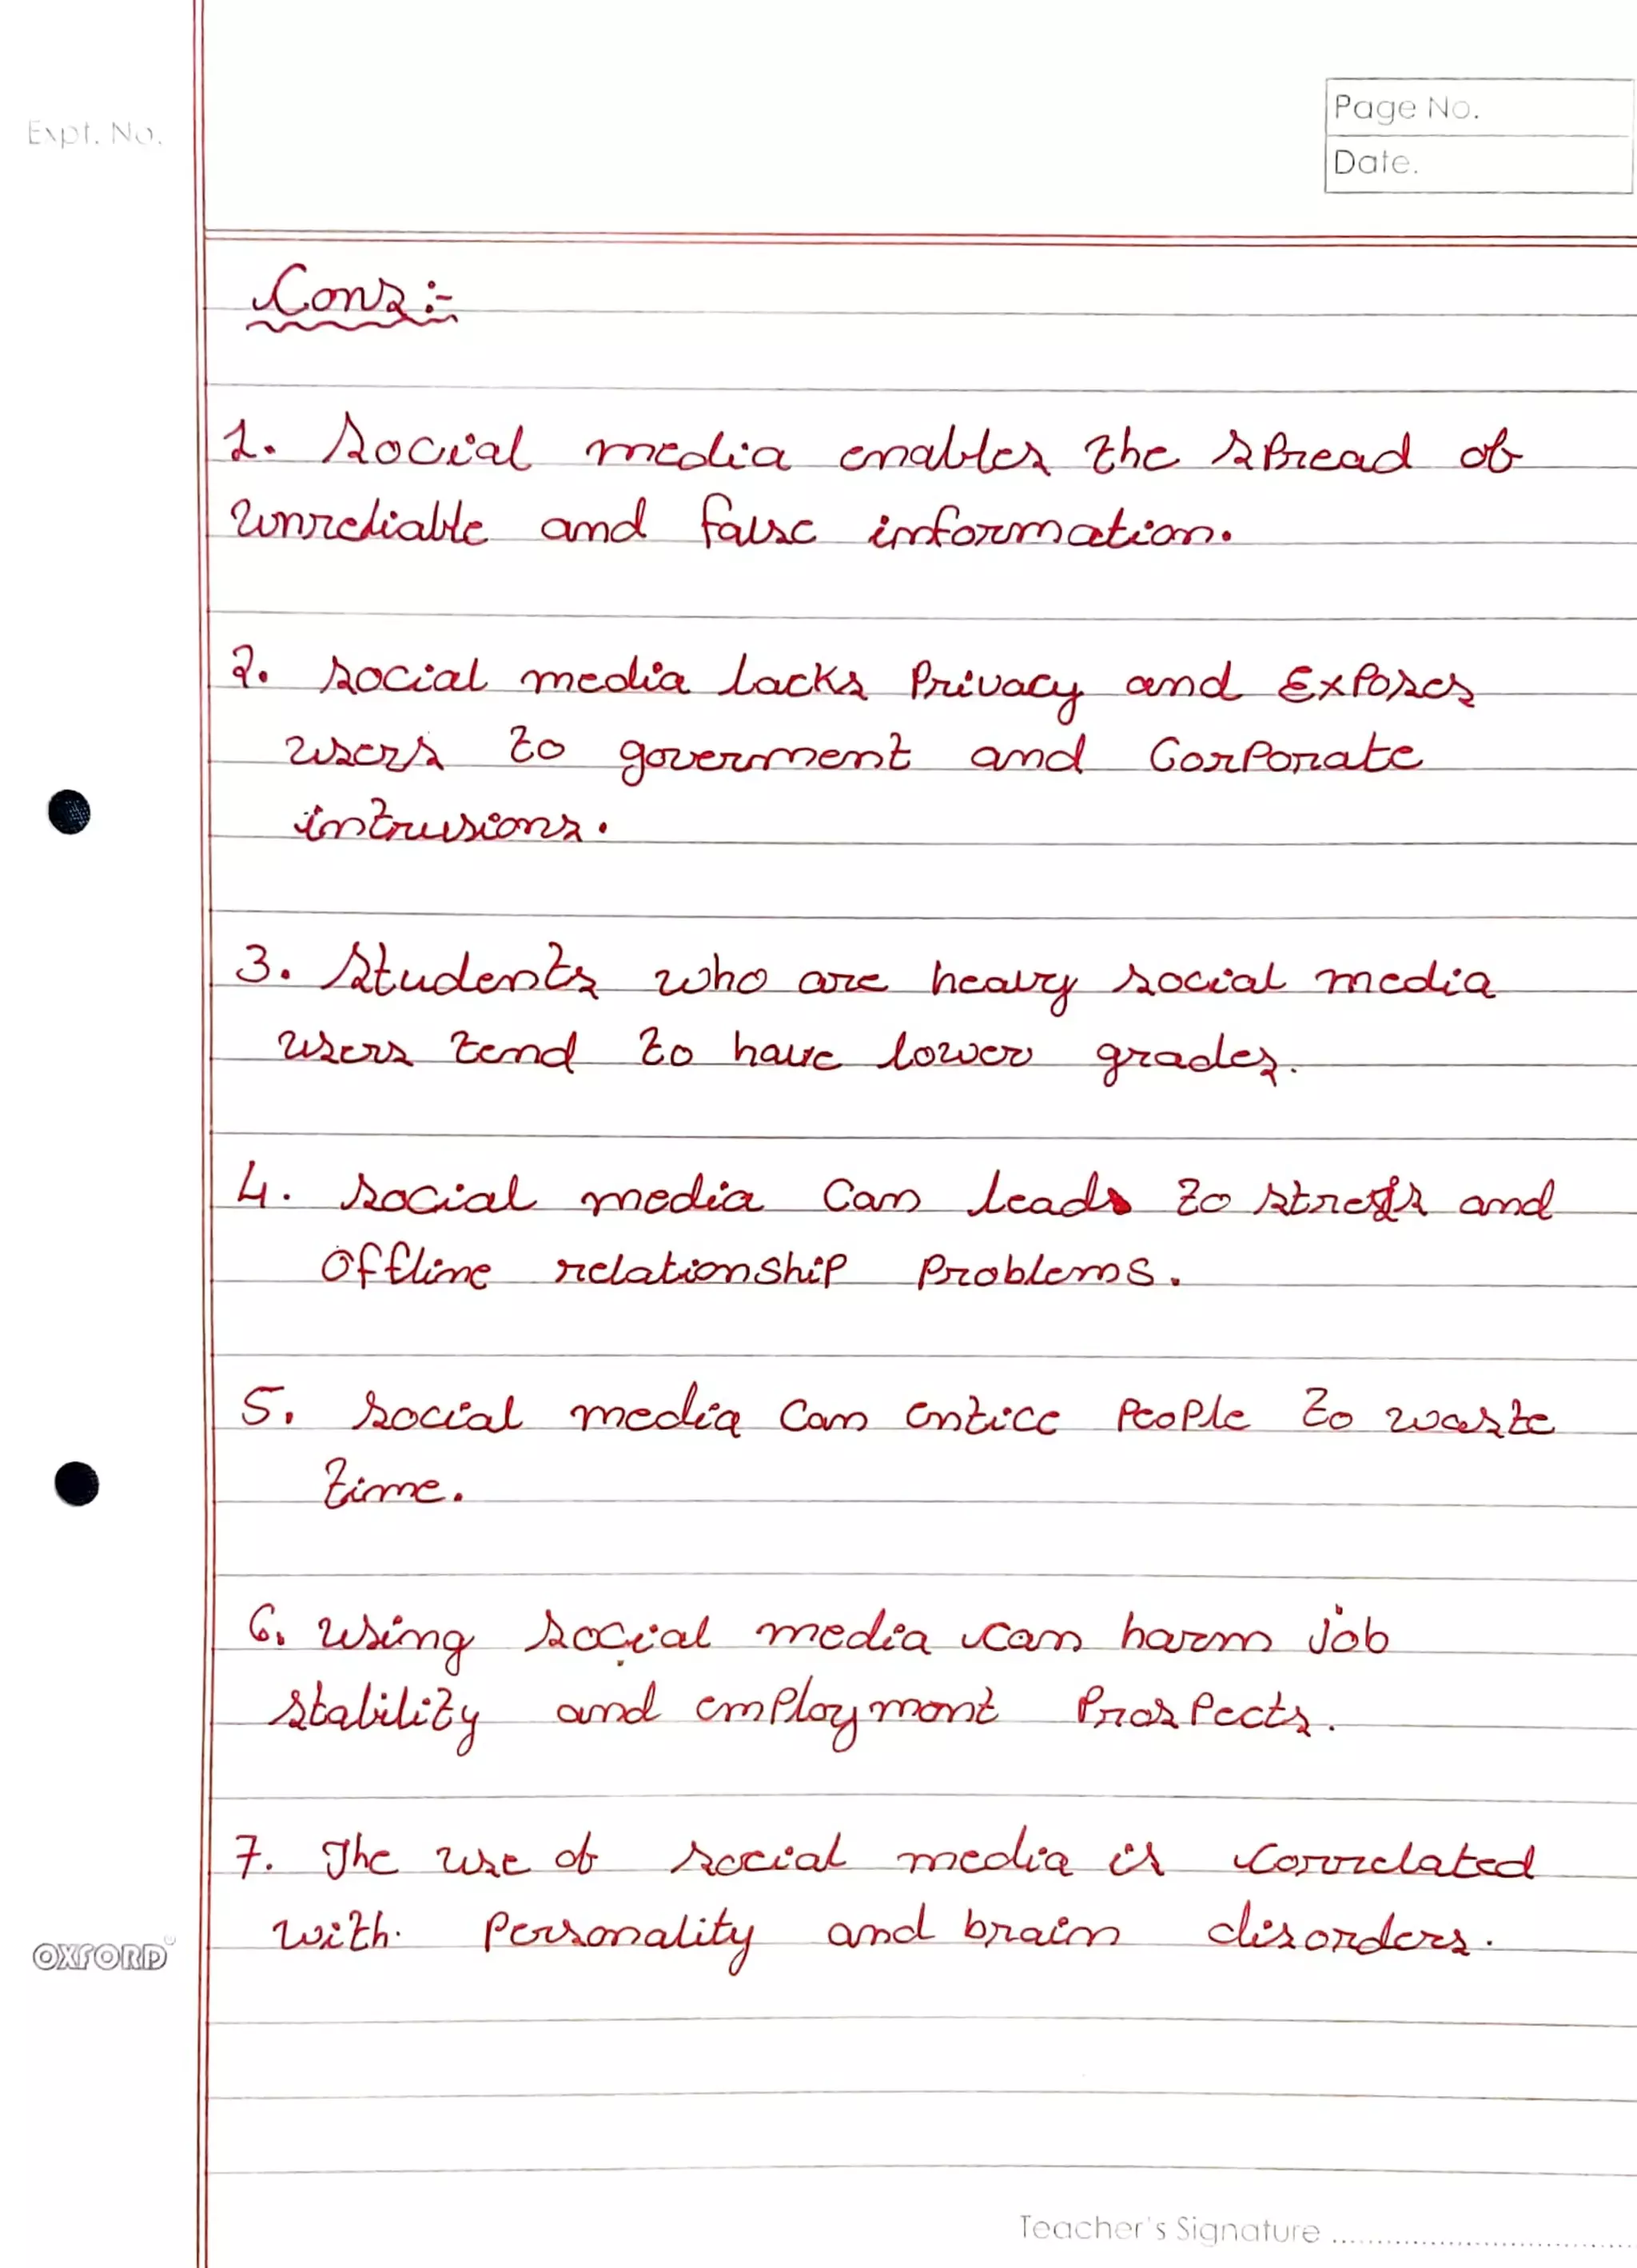 Expt. No.
Page No.
Date.
Cons :-
1. Social media enables the spread of
unreliable and false information.
2. social media lacks Privacy and Exposes
users to goverment and Corporate
intrusions.
3. Students who are heavy social media
users tend to have lower grades.
4. social media can leads to stress and
offline relationship Problems.
5. social media can entice People to waste
time.
6. using social media can harm job
stability and employment Prospects.
7. The use of social media is correlated
with. Personality and brain disorders.
OXFORD
Teacher's Signature